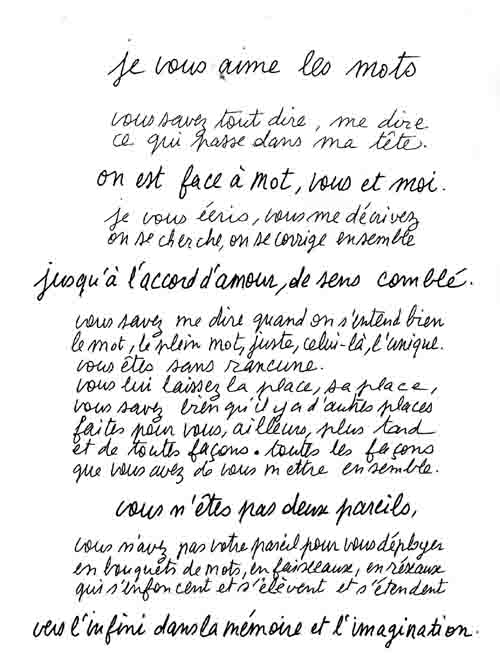 je vous aime les mots
vous savez tout dire, me dire
ce qui passe dans ma tête.
on est face à mot, vous et moi.
je vous écris, vous me décrivez
on se cherche, on se corrige ensemble
jusqu'à l'accord d'amour, de sens comblé.
vous savez me dire quand on s'entend bien
le mot, le plein mot, juste, celui-là, l'unique.
vous êtes sans rancune.
vous lui laissez la place, sa place,
vous savez bien qu'il y a d'autres places
faites pour vous, ailleurs, plus tard
et de toutes façons. toutes les façons
que vous avez de vous mettre ensemble.
vous n'êtes pas deux pareils,
vous n'avez pas votre pareil pour vous déployer
en bouquets de mots, en faisceaux, en réseaux
qui s'enfoncent et s'élèvent et s'étendent
vers l'infini dans la mémoire et l'imagination.